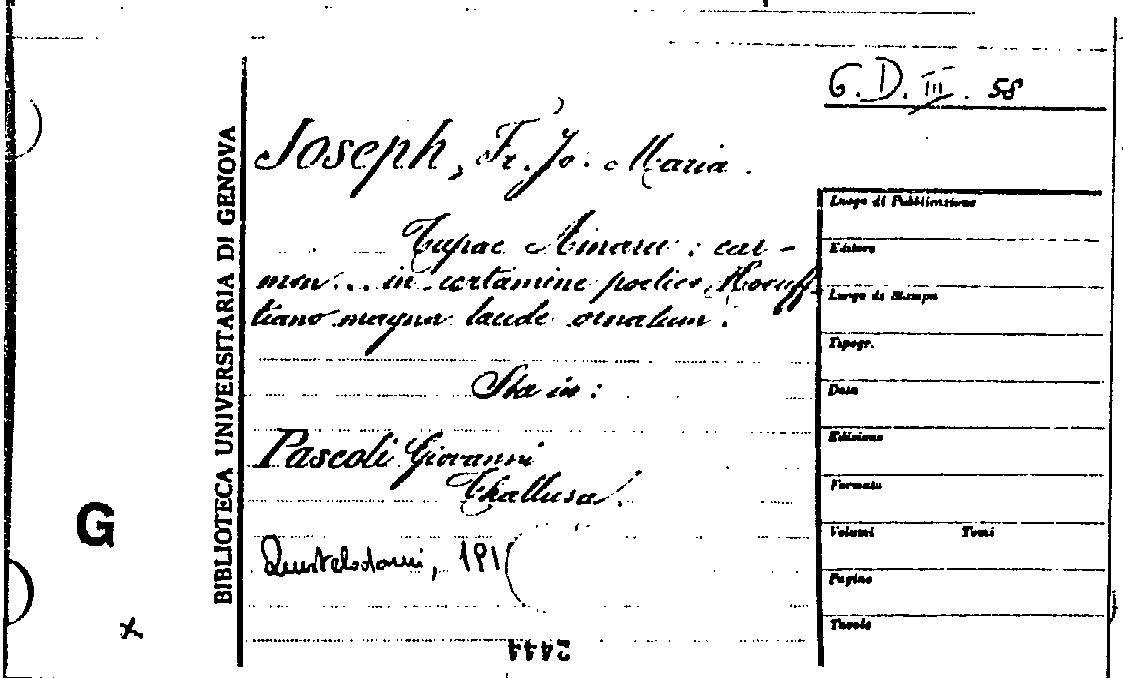 G.D.III.58
BIBLIOTECA UNIVERSITARIA DI GENOVA
Joseph, Fr. Jo. Maria.
Tupac Amaru: car-
men... in certamine poetico Hoeuff-
tiano magna laude ornatum.
Sta in:
Pascoli Giovanni
Thallusa.
191
G
2444
Luogo di Pubblicazione
Editore
Luogo di Stampa
Tipogr.
Data
Edizione
Formato
Volumi Tomi
Pagine
Tavole